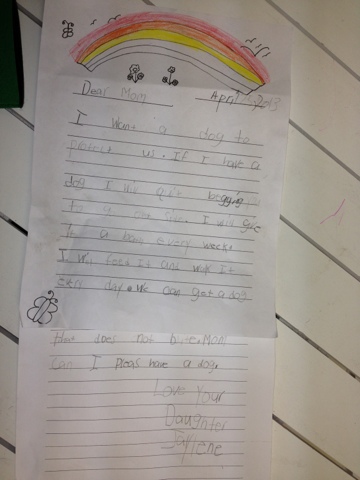 Dear Mom April 2013
I want a dog to
protect us. If I have a
dog I will quit begging
to I will give
it a bath every week.
I will feed it and walk it
every day. We can get a dog
that does not bite. Mom
can I pleas have a dog.
Love Your
Daughter
Jaylene